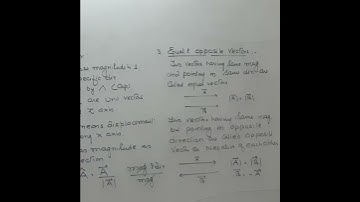 as magnitude is 1
specific dir
by ∧ (Cap)
are uni vector
x axis.
means displacement
ong x axis.
as magnitude as
ection
Â = A⃗ / |A⃗|
3. Equal & opposite vector.
Two vector having same mag
and pointing in same dir are
called equal vector
A⃗
B⃗
|A⃗| = |B⃗|
Two vector having same mag
but pointing in opposite
direction are called opposite
vector or
A⃗
B⃗
|A⃗| = |B⃗|
B⃗ = -A⃗